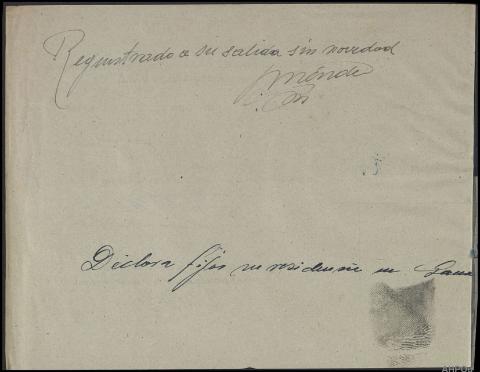 Registrado a su salida sin novedad
Méndez
Declara fijar su residencia en
AHPOU